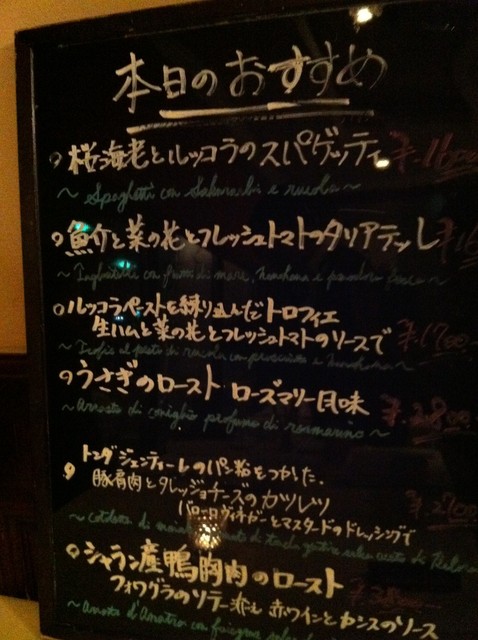 本日のおすすめ
桜海老とルッコラのスパゲッティ ¥.1600
~ Spaghetti con Sakuraebi e rucola ~
魚介と菜の花とフレッシュトマトのタリアテッレ ¥.16
~ Tagliatelle con frutti di mare, Nanohana e pomodoro fresco ~
ルッコラペーストを練り込んだトロフィエ
生ハムと菜の花とフレッシュトマトのソースで ¥.1700
~ Trofie al pesto di rucola con prosciutto e Nanohana ~
うさぎのロースト・ローズマリー風味 ¥.2800
~ Arrosto di coniglio profumo di rosmarino ~
トンダジェンティーレのパン粉をつかった、
豚肩肉とタレッジョチーズのカツレツ ¥.2700
バローロヴィネガーとマスタードのドレッシングで
~ cotoletta di maiale
シャラン産鴨胸肉のロースト
フォワグラのソテー添え 赤ワインとカシスのソース
~ Arrosto d'Anatra con